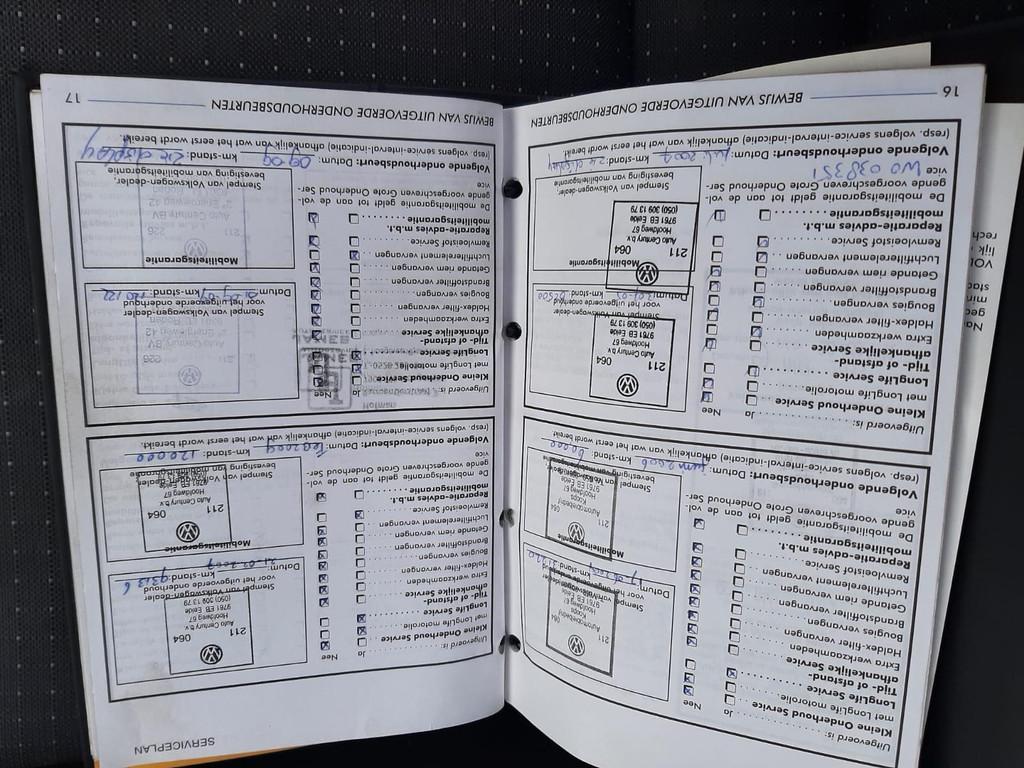 Uitgevoerd is: Ja Nee
Kleine Onderhoud Service
met Longlife motorolie
LongLife Service
Tijd- of afstand-
afhankelijke Service
Extra werkzaamheden
Haldex-filter vervangen
Bougies vervangen
Brandstoffilter vervangen
Getande riem vervangen
Luchtfilterelement vervangen
Remvloeistof Service
Reparatie-advies m.b.t.
mobiliteitsgarantie
De mobiliteitsgarantie geldt tot aan de vol-
gende voorgeschreven Grote Onderhoud Ser-
vice
Stempel Volkswagen-dealer
voor het uitgevoerde onderhoud
Datum: km-stand:
211
Autobedrijf
Hoofdweg 67
9761 EB Eelde
Mobiliteitsgarantie
Stempel Volkswagen-dealer,
bevestiging van mobiliteitsgarantie
211
Autobedrijf
Hoofdweg 67
9761 EB Eelde
Volgende onderhoudsbeurt: Datum: juni 2006 km-stand: 60.000
(resp. volgens service-interval-indicatie) afhankelijk van wat het eerst wordt bereikt
Uitgevoerd is: Ja Nee
Kleine Onderhoud Service
met Longlife motorolie
LongLife Service
Tijd- of afstand-
afhankelijke Service
Extra werkzaamheden
Haldex-filter vervangen
Bougies vervangen
Brandstoffilter vervangen
Getande riem vervangen
Luchtfilterelement vervangen
Remvloeistof Service
Reparatie-advies m.b.t.
mobiliteitsgarantie
De mobiliteitsgarantie geldt tot aan de vol-
gende voorgeschreven Grote Onderhoud Ser-
vice
WO 038351
211 064
Auto Century b.v.
Hoofdweg 67
9761 EB Eelde
(050) 309 13 79
Stempel Volkswagen-dealer
voor het uitgevoerde onderhoud
Datum: km-stand:
Mobiliteitsgarantie
211 064
Auto Century b.v.
Hoofdweg 67
9761 EB Eelde
(050) 309 13 79
Stempel Volkswagen-dealer,
bevestiging van mobiliteitsgarantie
Volgende onderhoudsbeurt: Datum: juli 2007 km-stand: zie display
(resp. volgens service-interval-indicatie) afhankelijk van wat het eerst wordt bereikt.
16 BEWIJS VAN UITGEVOERDE ONDERHOUDSBEURTEN
SERVICEPLAN
Uitgevoerd is: Ja Nee
Kleine Onderhoud Service
met Longlife motorolie
Longlife Service
Tijd- of afstand-
afhankelijke Service
Extra werkzaamheden
Haldex-filter vervangen
Bougies vervangen
Brandstoffilter vervangen
Getande riem vervangen
Luchtfilterelement vervangen
Remvloeistof Service
Reparatie-advies m.b.t.
mobiliteitsgarantie
De mobiliteitsgarantie geldt tot aan de vol-
gende voorgeschreven Grote Onderhoud Ser-
vice
211 064
Auto Century b.v.
Hoofdweg 67
9761 EB Eelde
(050) 309 13 79
Stempel Volkswagen-dealer
voor het uitgevoerde onderhoud
Datum: 21-02-2007 km-stand: 93136
Mobiliteitsgarantie
211 064
Auto Century b.v.
Hoofdweg 67
9761 EB Eelde
Stempel Volkswagen-dealer,
bevestiging van mobiliteitsgarantie
Volgende onderhoudsbeurt: Datum: Feb 2009 km-stand: 120.000
(resp. volgens service-interval-indicatie) afhankelijk van wat het eerst wordt bereikt.
Uitgevoerd is: Ja Nee
Kleine Onderhoud Service
met Longlife motorolie
LongLife Service
Tijd- of afstand-
afhankelijke Service
Extra werkzaamheden
Haldex-filter vervangen
Bougies vervangen
Brandstoffilter vervangen
Getande riem vervangen
Luchtfilterelement vervangen
Remvloeistof Service
Reparatie-advies m.b.t.
mobiliteitsgarantie
De mobiliteitsgarantie geldt tot aan de vol-
gende voorgeschreven Grote Onderhoud Ser-
vice
211 226
Auto Century BV
Stempel Volkswagen-dealer
voor het uitgevoerde onderhoud
Datum: km-stand: 120122
Mobiliteitsgarantie
211 226
Auto Century BV
Stempel Volkswagen-dealer,
bevestiging van mobiliteitsgarantie
Volgende onderhoudsbeurt: Datum: 09-09 km-stand: Zie display
(resp. volgens service-interval-indicatie) afhankelijk van wat het eerst wordt bereikt.
BEWIJS VAN UITGEVOERDE ONDERHOUDSBEURTEN 17